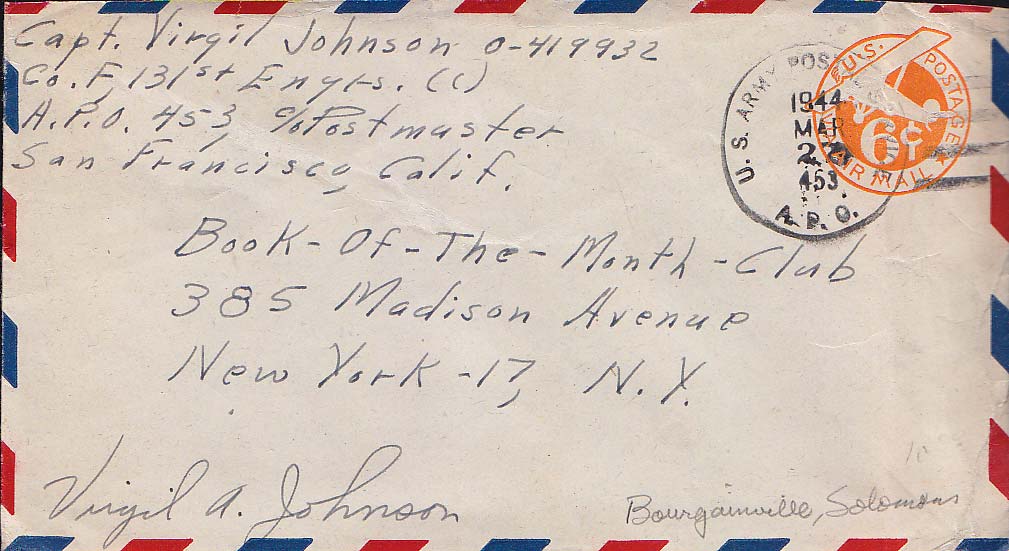 Capt. Virgil Johnson O-419932
Co. F, 131st Engrs. (C)
A.P.O. 453, c/o Postmaster
San Francisco, Calif.
U.S. ARMY POSTAL
1944
MAR
22
453
A.P.O.
U.S. POSTAGE
6¢
AIR MAIL
Book-Of-The-Month-Club
385 Madison Avenue
New York-17, N.Y.
Virgil A. Johnson
Bourgainville, Solomons